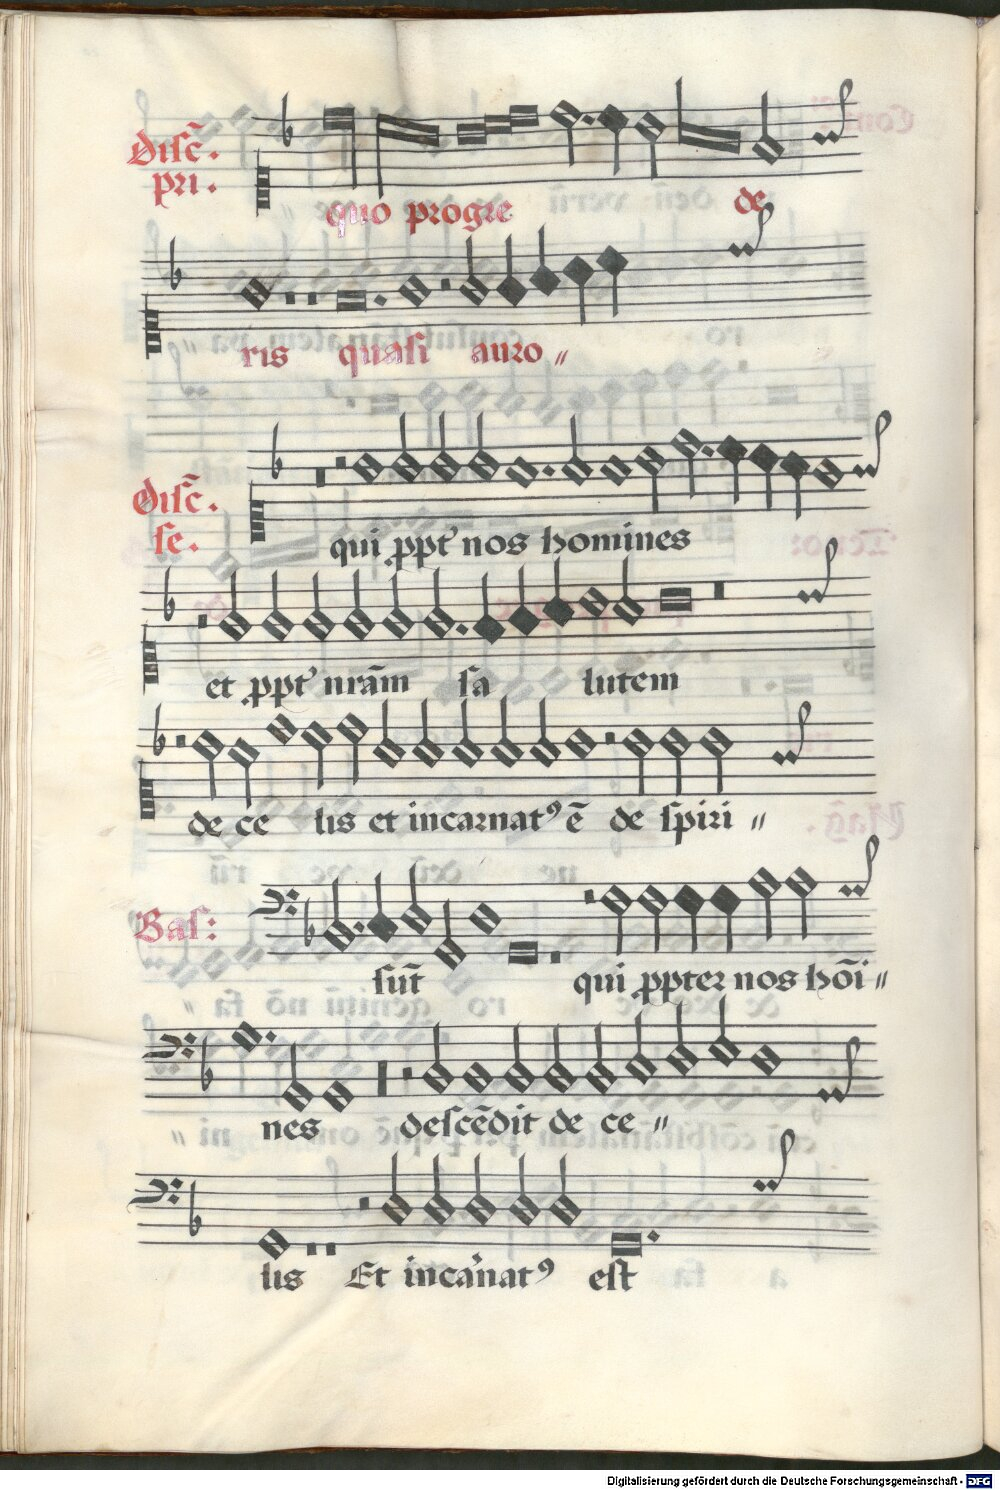 Disc̄.
pri.
quo progre de
ris quasi auro〃
Disc̄.
se.
qui ꝓpt᷑ nos homines
et ꝓpt᷑ nrām sa lutem
de ce lis et incarnatꝰ ē de spiri〃
Bas:
sūt qui ꝓpter nos hōi〃
nes descēdit de ce〃
lis Et incarnatꝰ est
Digitalisierung gefördert durch die Deutsche Forschungsgemeinschaft - DFG